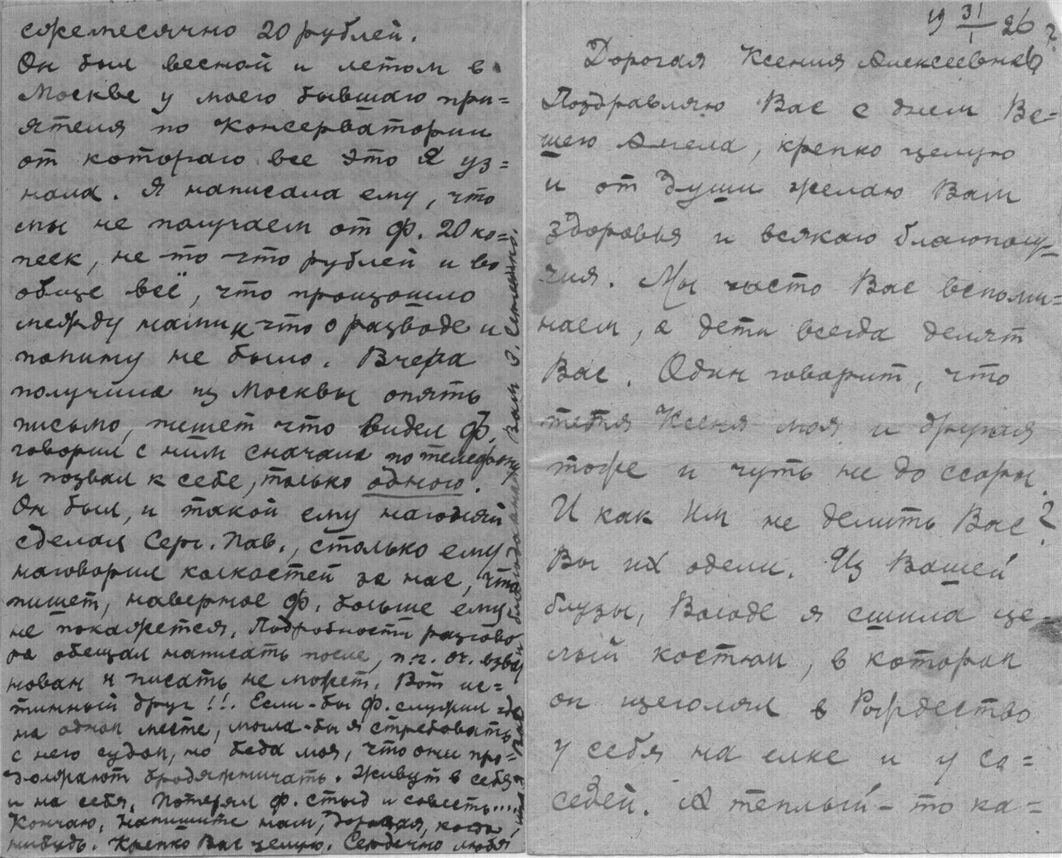 ежемесячно 20 рублей.
Он был весной и летом в
Москве у моего бывшаго при=
ятеля по Консерватории
от котораго все это я уз=
нала. Я написала ему, что
мы не получаем от Ф. 20 ко=
пеек, не то что рублей и во
обще всё, что произошло
между нами и что о разводе и
помину не было. Вчера
получила из Москвы опять
письмо, пишет что видел Ф.
говорил с ним сначала по телефону
и позвал к себе, только одного.
Он был, и такой ему нагоняй
сделал Серг. Пав., столько ему
наговорил колкостей за нас, что
пишет, наверное Ф. больше ему
не покажется. Подробности разгово
ра обещал написать после, п.ч. оч. взвол
нован и писать не может. Вот ис=
тинный друг!!. Если-бы Ф. служил где
на одном месте, могла-бы я стребовать
с него судом, но беда моя, что они про=
должают бродяжничать. Живут в себя
и на себя. Потерял Ф. стыд и совесть....
Кончаю. Напишите нам, дорогая, когда
нибудь. Крепко Вас целую. Сердечно любя
благодарная Вам З.
19 31/1 26 г
Дорогая Ксения Алексеевна!
Поздравляю Вас с днем Ва=
шего Ангела, крепко целую
и от души желаю Вам
здоровья и всякаго благополу=
чия. Мы часто Вас вспоми=
наем, а дети всегда делят
Вас. Один говорит, что
тетя Ксеня моя и другая
тоже и чуть не до ссоры.
И как им не делить Вас?
Вы их одели. Из Вашей
блузы, Володе я сшила це=
лый костюм, в котором
он щеголял в Рождество
у себя на елке и у со=
седей. А теплый-то ка=